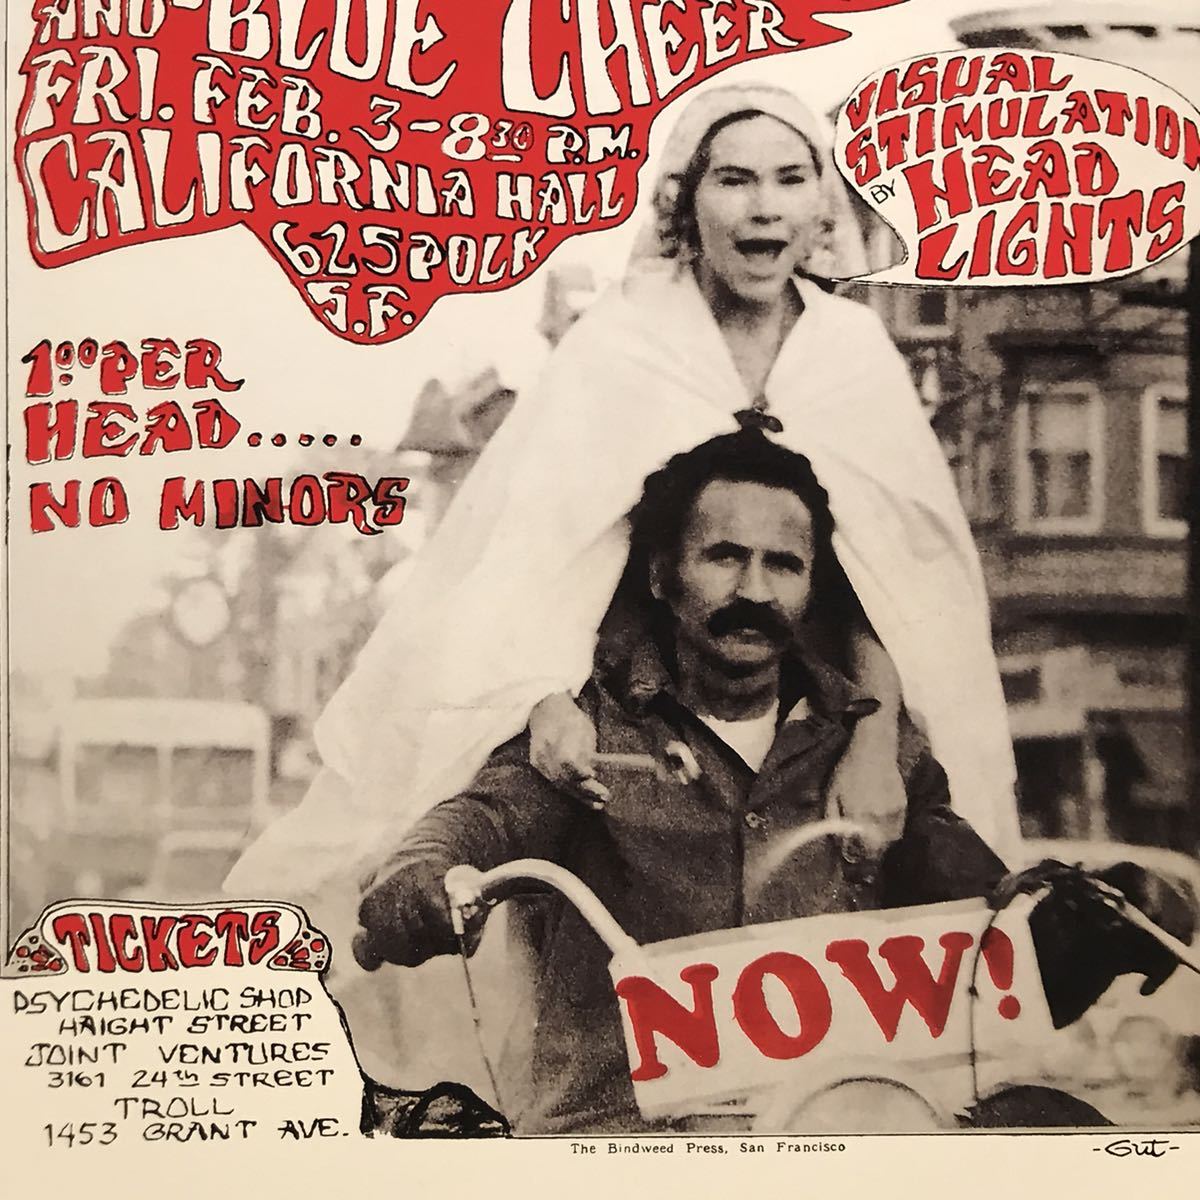 AND BLUE CHEER
FRI. FEB. 3-8:30 P.M.
CALIFORNIA HALL
625 POLK
S.F.
VISUAL
STIMULATION
BY HEAD
LIGHTS
1.00 PER
HEAD.....
NO MINORS
NOW!
TICKETS
PSYCHEDELIC SHOP
HAIGHT STREET
JOINT VENTURES
3161 24th STREET
TROLL
1453 GRANT AVE.
The Bindweed Press, San Francisco
-Gut-